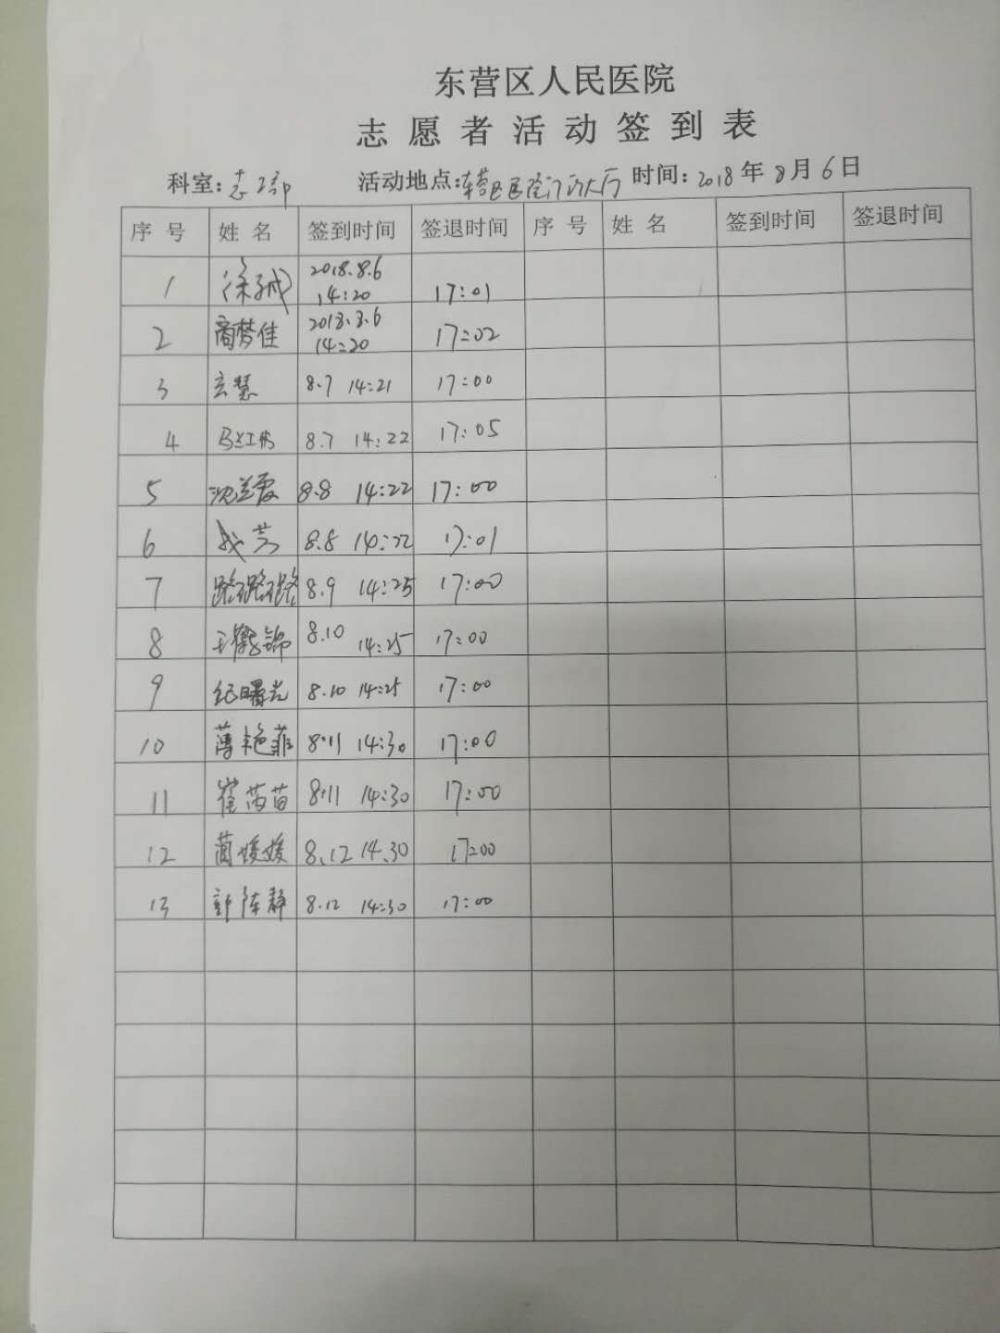 东营区人民医院
志愿者活动签到表
科室: 活动地点:东营区医院门诊大厅 时间:2018年8月6日
序号 姓名 签到时间 签退时间 序号 姓名 签到时间 签退时间
1 2018.8.6 14:20 17:01
2 商梦佳 2018.8.6 14:20 17:02
3 玄慧 8.7 14:21 17:00
4 8.7 14:22 17:05
5 8.8 14:22 17:00
6 8.8 14:22 17:01
7 路路路 8.9 14:25 17:00
8 8.10 14:25 17:00
9 纪曙光 8.10 14:25 17:00
10 薄艳菲 8.11 14:30 17:00
11 崔芮苗 8.11 14:30 17:00
12 蔺媛媛 8.12 14.30 17:00
13 8.12 14:30 17:00